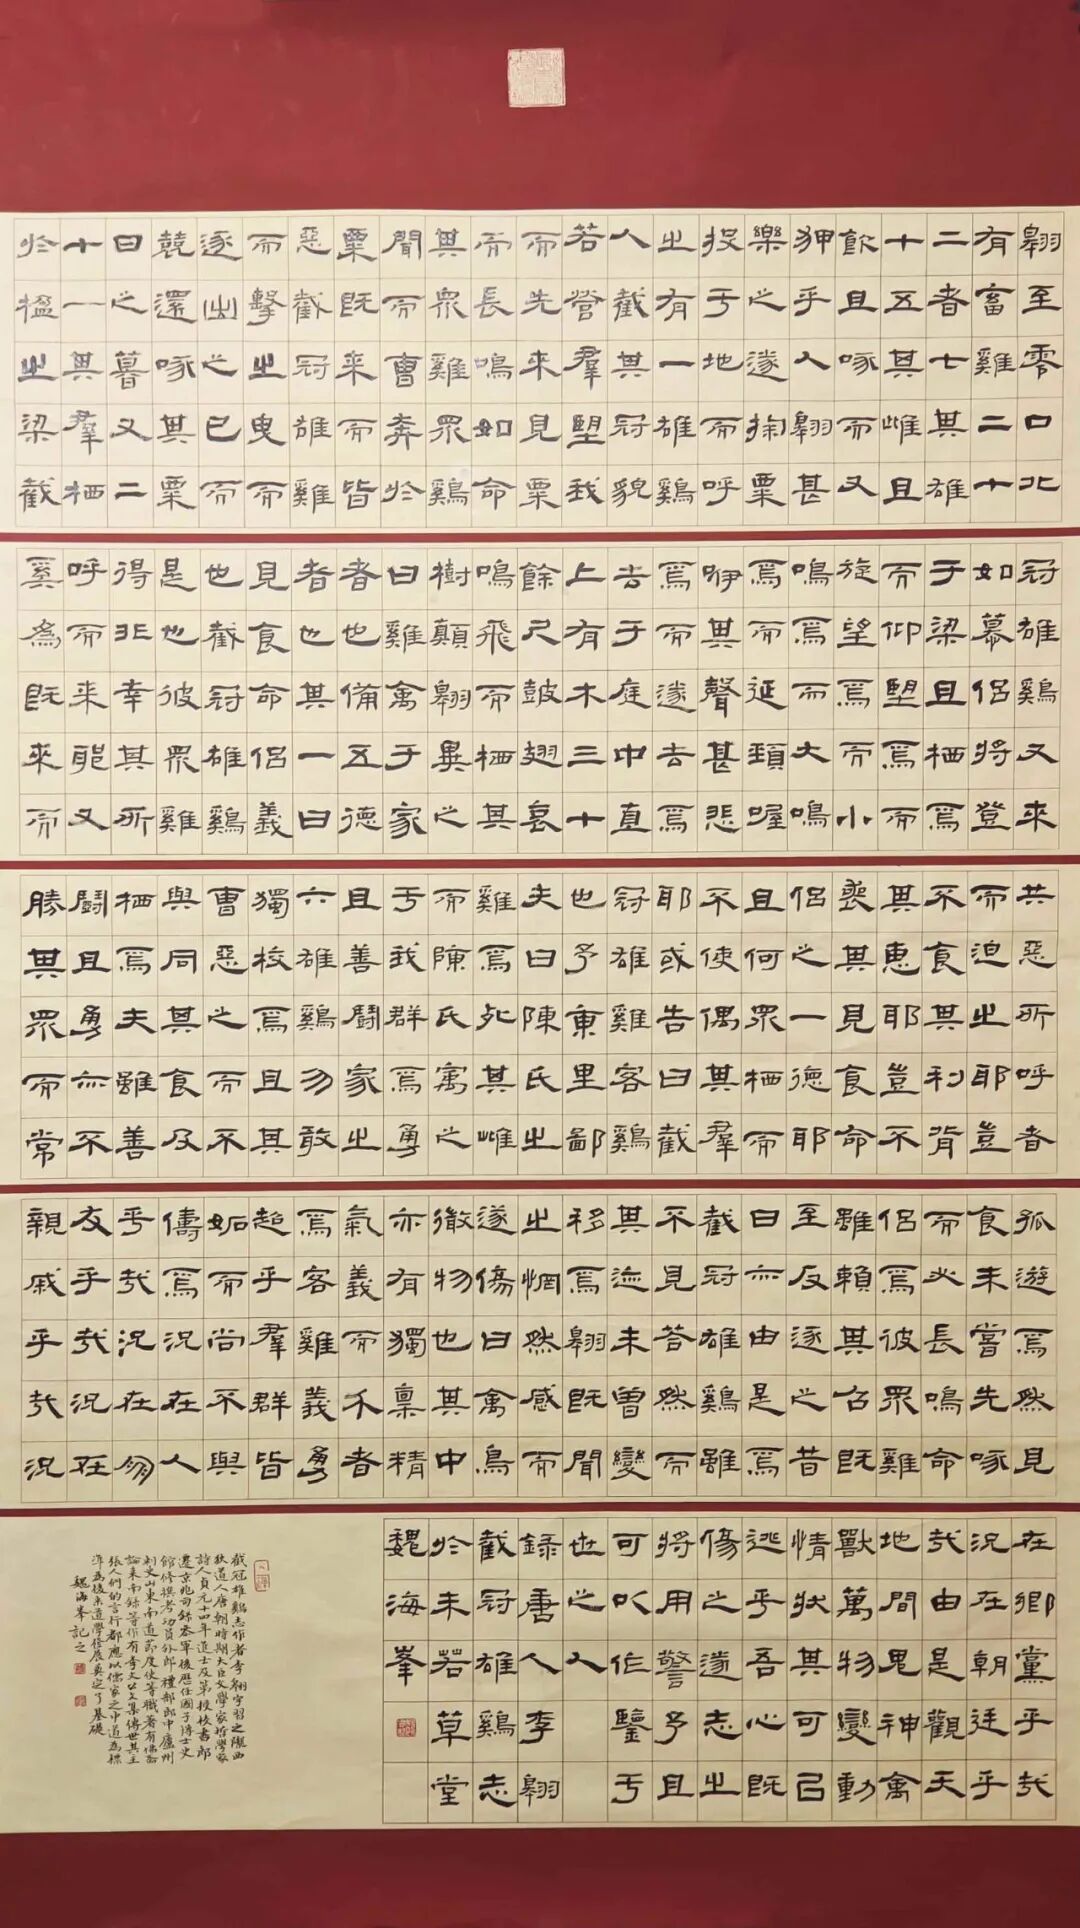 翱至零口北
有畜雞二十
二者七其雄
十五其雌且
飲且啄而又
狎乎人翱甚
樂之遂掬粟
投于地而呼
之有一雄雞
人截其冠貌
若營羣望我
而先來見粟
而長鳴如命
其眾雞眾雞
聞而曹奔於
粟既來而皆
惡截冠雄雞
而擊之曳而
逐出之已而
競還啄其粟
日之暮又二
十一其羣栖
於楹之梁截
冠雄雞又來
如慕侶將登
于梁且栖焉
而仰望焉而
旋望焉而小
鳴焉而大鳴
焉而延頸喔
咿其聲甚悲
焉而遂去焉
去于庭中直
上有木三十
餘尺鼓翅哀
鳴飛而栖其
樹顛翱異之
曰雞寓于家
者也備五德
者也其一曰
見食命侶義
也截冠雄雞
是也彼眾雞
得非幸其所
呼而來能又
奚為既來而
共惡所呼者
而迫之耶豈
不食其利背
其惠耶豈不
喪其見食命
侶之一德耶
且何眾栖而
不使偶其羣
耶或告曰截
冠雄雞客雞
也予東里鄙
夫曰陳氏之
雞焉死其雌
而陳氏寓之
于我群焉勇
且善鬪家之
六雄雞勿敢
獨校焉且其
曹惡之而不
與同其食及
栖焉夫雖善
鬪且勇亦不
勝其眾而常
孤遊焉然見
食未嘗先啄
而必長鳴命
侶焉彼眾雞
雖賴其召既
至反逐之昔
曰亦由是焉
截冠雄雞雖
不見答然而
其迹未曾變
移焉翱既聞
之惘然感而
遂傷曰禽鳥
徹物也其中
亦有獨稟精
氣義而不者
焉客雞義勇
超乎羣群皆
妬而尚不與
儔焉況在人
乎哉況在朋
友乎哉況在
親戚乎哉況
在鄉黨乎哉
況在朝廷乎
哉由是觀天
地間鬼神禽
獸萬物變動
情狀其可以
逃乎吾心既
傷之遂志之
將用警予且
可以作鑒于
世之人
錄唐人李翱
截冠雄雞志
於未若草堂
魏海峯
截冠雄雞志作者李翱字習之隴西
狄道人唐朝時期大臣文學家哲學家
詩人貞元十四年進士及第授校書郎
遷京兆司錄參軍後歷任國子博士史
館修撰考功員外郎禮部郎中廬州
刺史山東南道節度使等職著有佛齋
論來南錄等作有李文公文集傳世其主
張人們的言行都應以儒家之中道為標
準為後來道學發展奠定了基礎
魏海峯記之